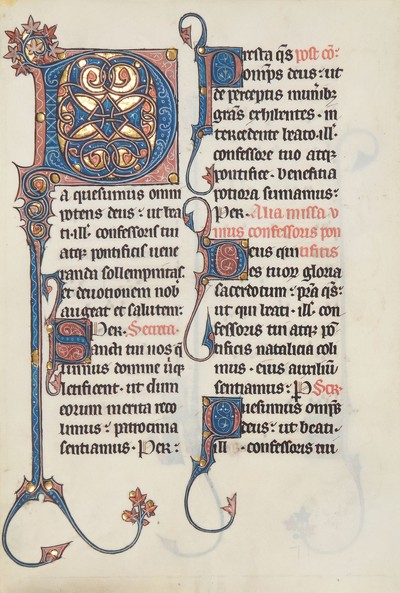 Da quesumus omni
potens deus : ut bea
ti · ill · confessoris tui
atq; pontificis uene
randa sollempnitas
et deuotionem nob
augeat et salutem :
Per · Secreta ·
Sancti tui nos q̄
sumus domine ubiq;
letificent · ut dum
eorum merita reco
limus : patrocinia
sentiamus · Per :
Presta q̄s post cō :
omīps deus : ut
de perceptis munibꝫ
grās exhibentes · in
tercedente beato · ill ·
confessore tuo atq;
pontifice · beneficia
potiora sumamus :
Per · Alia missa v
nius confessoris pon
Deus qui tificis
es tuoꝝ gloria
sacerdotum : pra q̄s :
ut qui beati · ill · con
fessoris tui atq; pō
tificis natalicia coli
mus · eius auxiliū
sentiamus : P Secr
Quesumus omīps
deus : ut beati ·
ill · confessoris tui